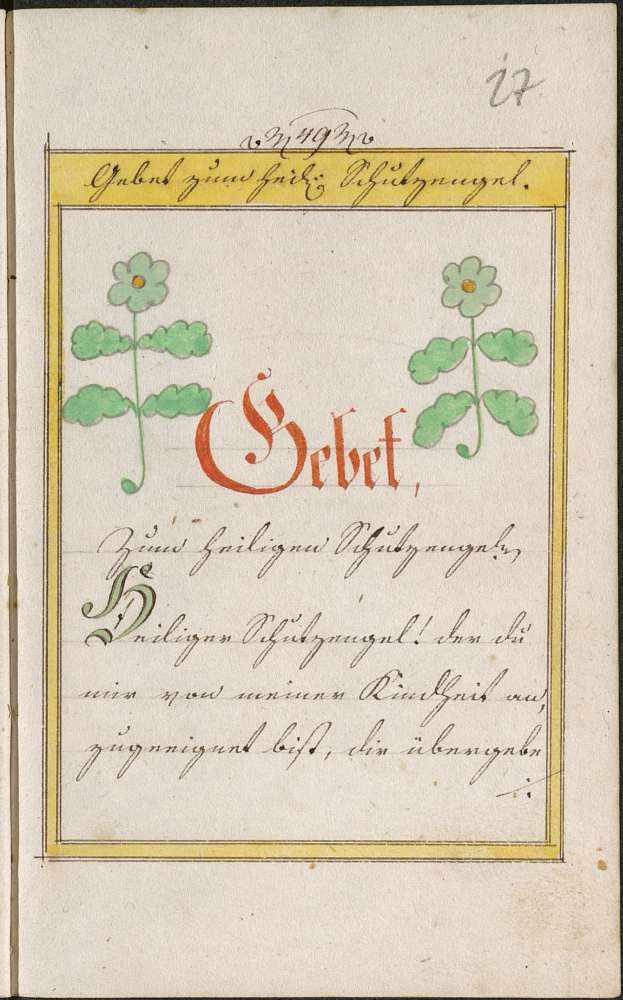 27
49
Gebet zum heil: Schutzengel.
Gebet,
Zum heiligen Schutzengel.
Heiliger Schutzengel! der du
mir von meiner Kindheit an,
zugeeignet bist, dir übergebe